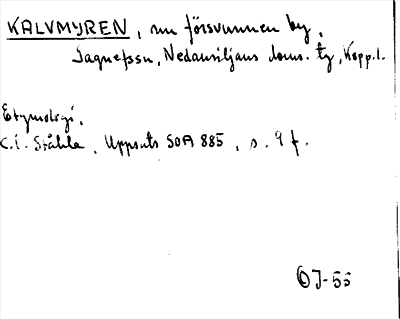 KALVMYREN, nu försvunnen by,
Jagnefssn, Nedansiljans doms. tg, Kopp.l.
Etymologi.
C.I. Ståhle, Uppsats SOA 885, s. 9 f.
OJ-55